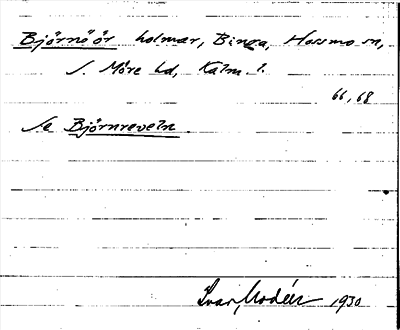 Björnöör holmar, Binga, Hossmo sn,
S. Möre hd, Kalm. l.
66, 68
Se Björnreveln
Ivar Modéer 1930